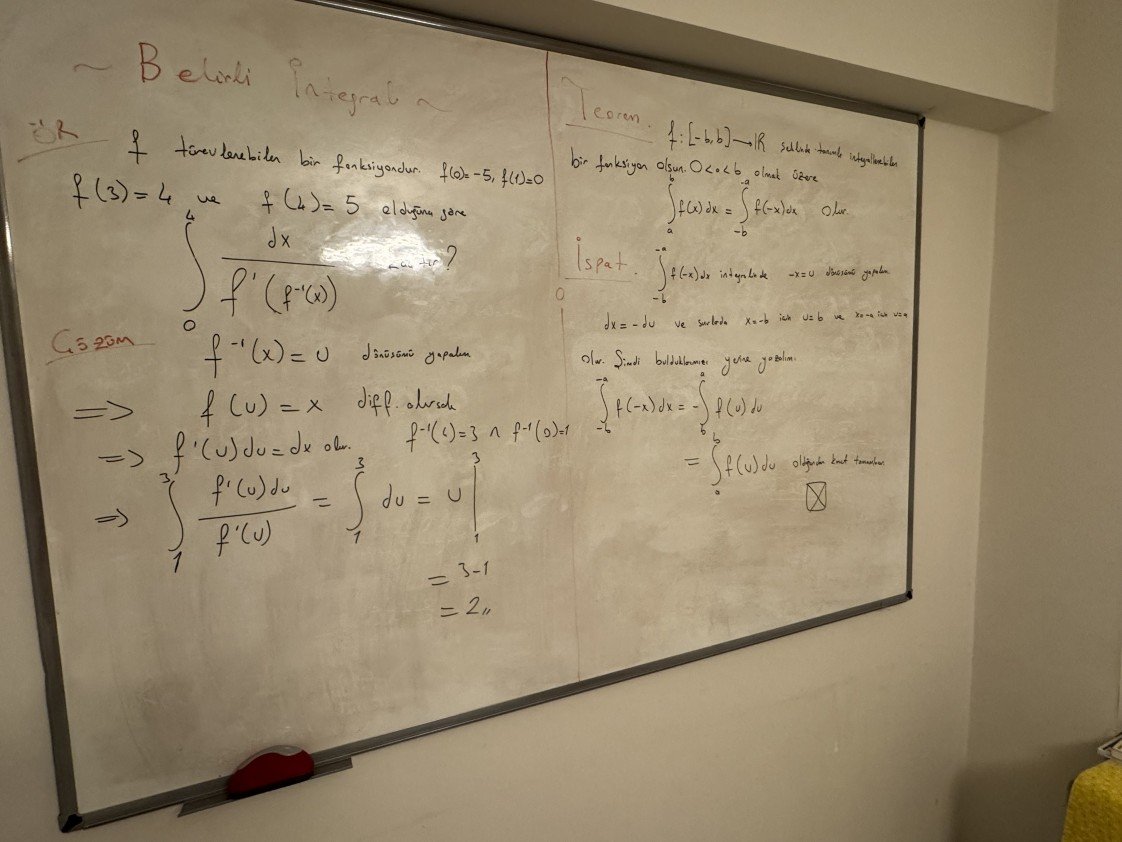 ~ Belirli İntegral ~
ÖR
f türevlenebilen bir fonksiyondur. f(0)=-5, f(1)=0
f(3)=4 ve f(4)=5 olduğuna göre
∫₀⁴ dx / f'(f⁻¹(x)) ?
Çözüm
f⁻¹(x) = u dönüşümü yapalım
=> f(u) = x diff. alırsak
=> f'(u)du = dx olur. f⁻¹(4)=3 ∧ f⁻¹(0)=1
=> ∫₁³ f'(u)du / f'(u) = ∫₁³ du = u |₁³
= 3-1
= 2,,
Teorem.
f: [-b,b] → IR şeklinde tanımlı integrallenebilen
bir fonksiyon olsun. 0<a<b olmak üzere
∫ₐᵇ f(x)dx = ∫₋ᵇ⁻ᵃ f(-x)dx olur.
İspat. ∫₋ᵇ⁻ᵃ f(-x)dx integralinde -x=u dönüşümü yapalım
dx = -du ve sınırlarda x=-b için u=b ve x=-a için u=a
olur. Şimdi bulduklarımızı yerine yazalım.
∫₋ᵇ⁻ᵃ f(-x)dx = -∫ᵇᵃ f(u)du
= ∫ₐᵇ f(u)du olduğundan kanıt tamamlanır